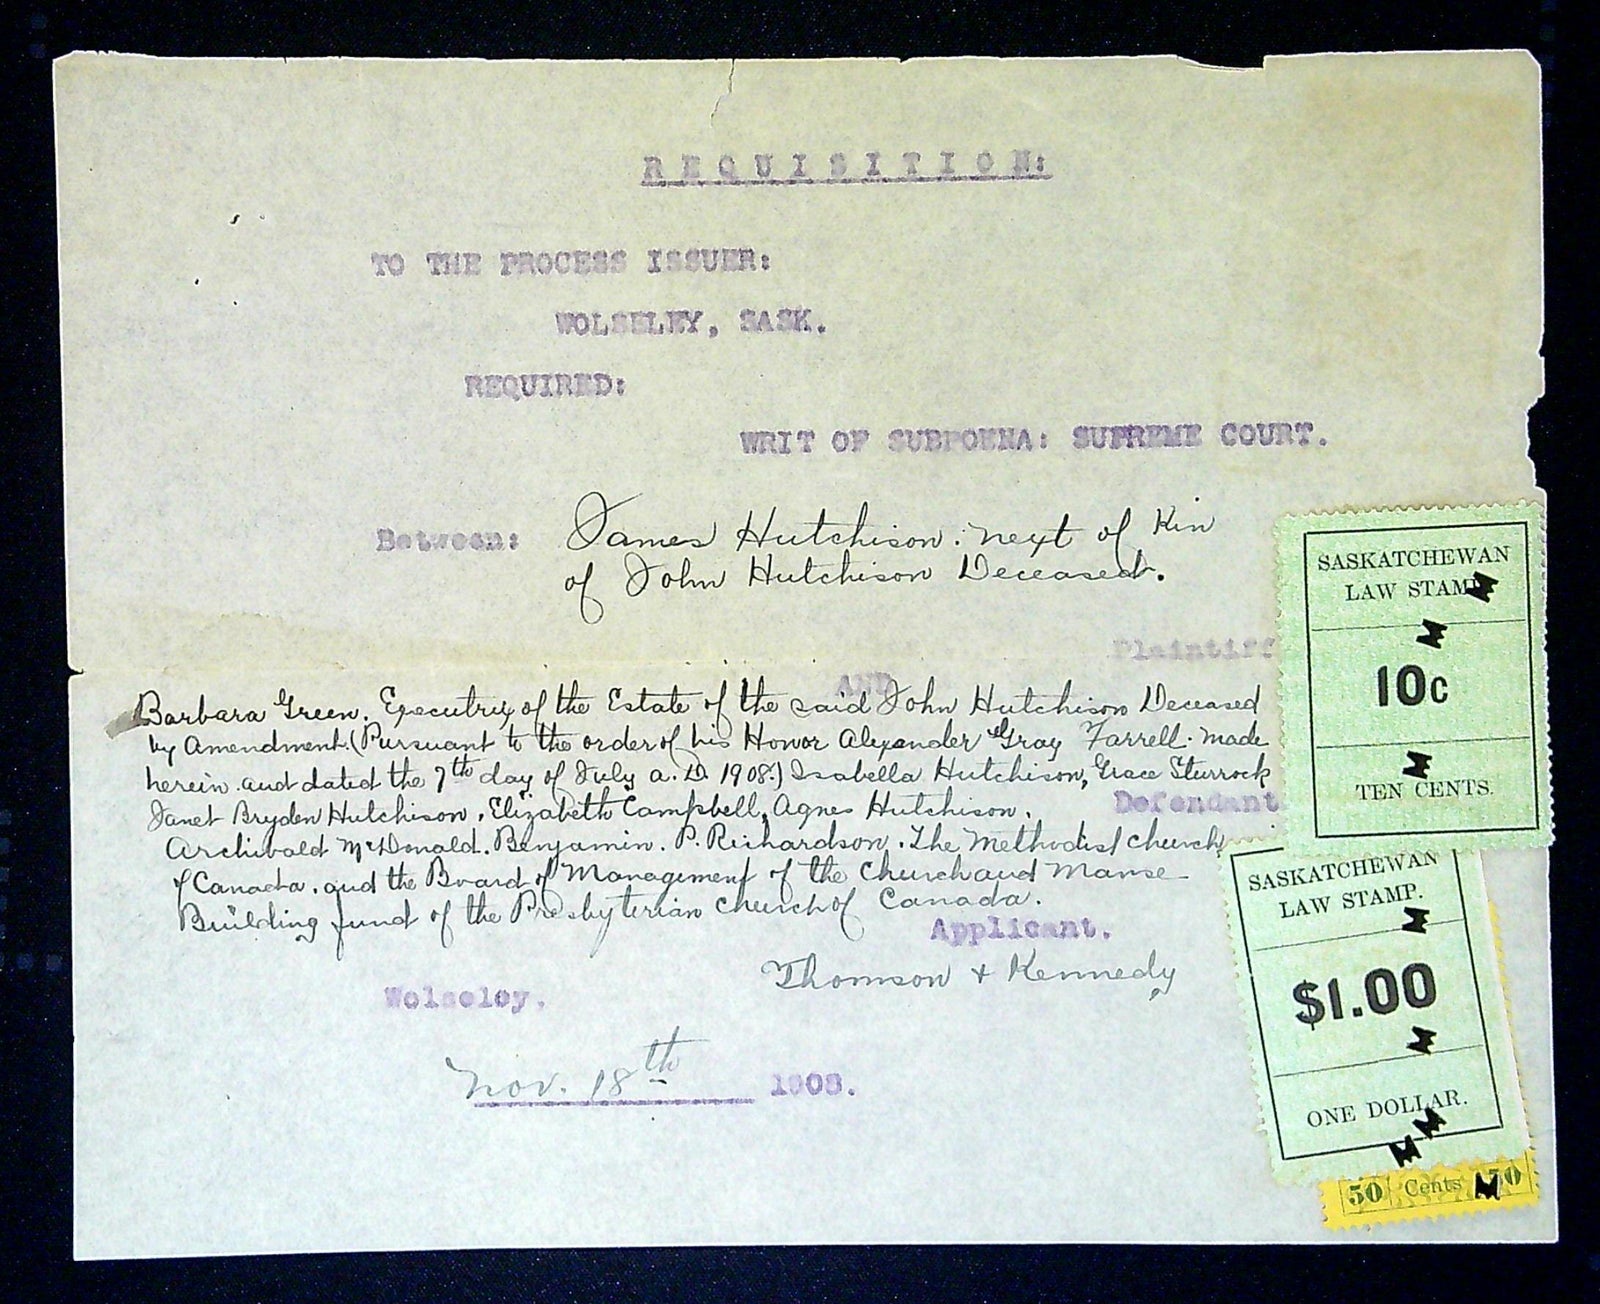 REQUISITION:
TO THE PROCESS ISSUER:
WOLSELEY, SASK.
REQUIRED:
WRIT OF SUBPOENA: SUPREME COURT.
Between: James Hutchison. next of Kin
of John Hutchison Deceased.
Plaintiff
AND
Barbara Green. Executrix of the Estate of the said John Hutchison Deceased
by Amendment. (Pursuant to the order of his Honor Alexander Gray Farrell. made
herein and dated the 7th day of July a.D. 1908.) Isabella Hutchison, Grace Sturrock
Janet Bryden Hutchison. Elizabeth Campbell, Agnes Hutchison.
Defendant
Archibald McDonald. Benjamin. P. Richardson. The Methodist church
of Canada. and the Board of Management of the Church and Manse
Building fund of the Presbyterian church of Canada.
Applicant.
Thomson & Kennedy
Wolseley.
Nov. 18th 1908.
SASKATCHEWAN
LAW STAMP
10c
TEN CENTS.
SASKATCHEWAN
LAW STAMP.
$1.00
ONE DOLLAR.
50 Cents 50